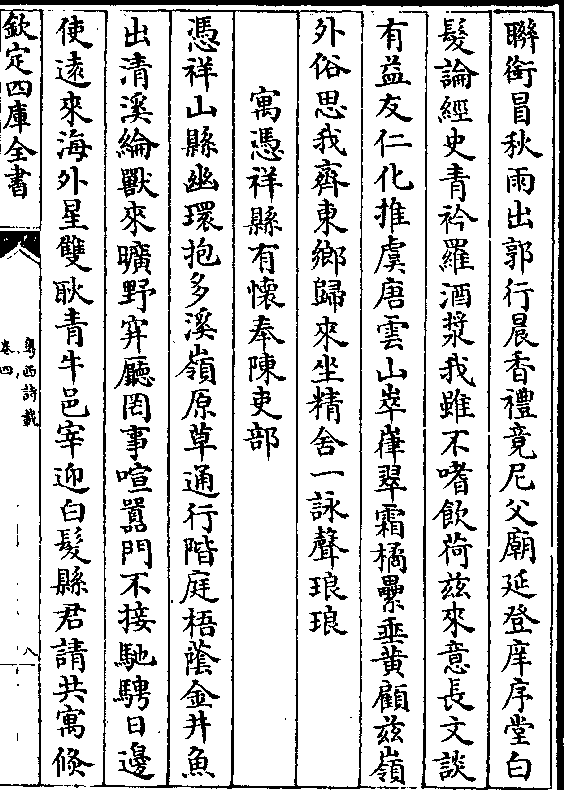 聨銜冒秋雨出郭行晨香禮竟尼父廟延登庠序堂白
髮論經史青衿羅酒漿我雖不嗜飲荷兹來意長文談
有益友仁化推虞唐雲山崒嵂翠霜橘纍垂黄顧兹嶺
外俗思我齊東鄉歸來坐精舍一詠聲琅琅
寓憑祥縣有懷奉陳吏部
憑祥山縣幽環抱多溪嶺原草通行階庭梧蔭金井魚
出清溪綸獸來曠野穽廳罔事喧囂門不接馳騁日邊
使逺來海外星雙耿青牛邑宰迎白髮縣君請共寓倐
欽定四庫全書
粤西詩載
卷四
八